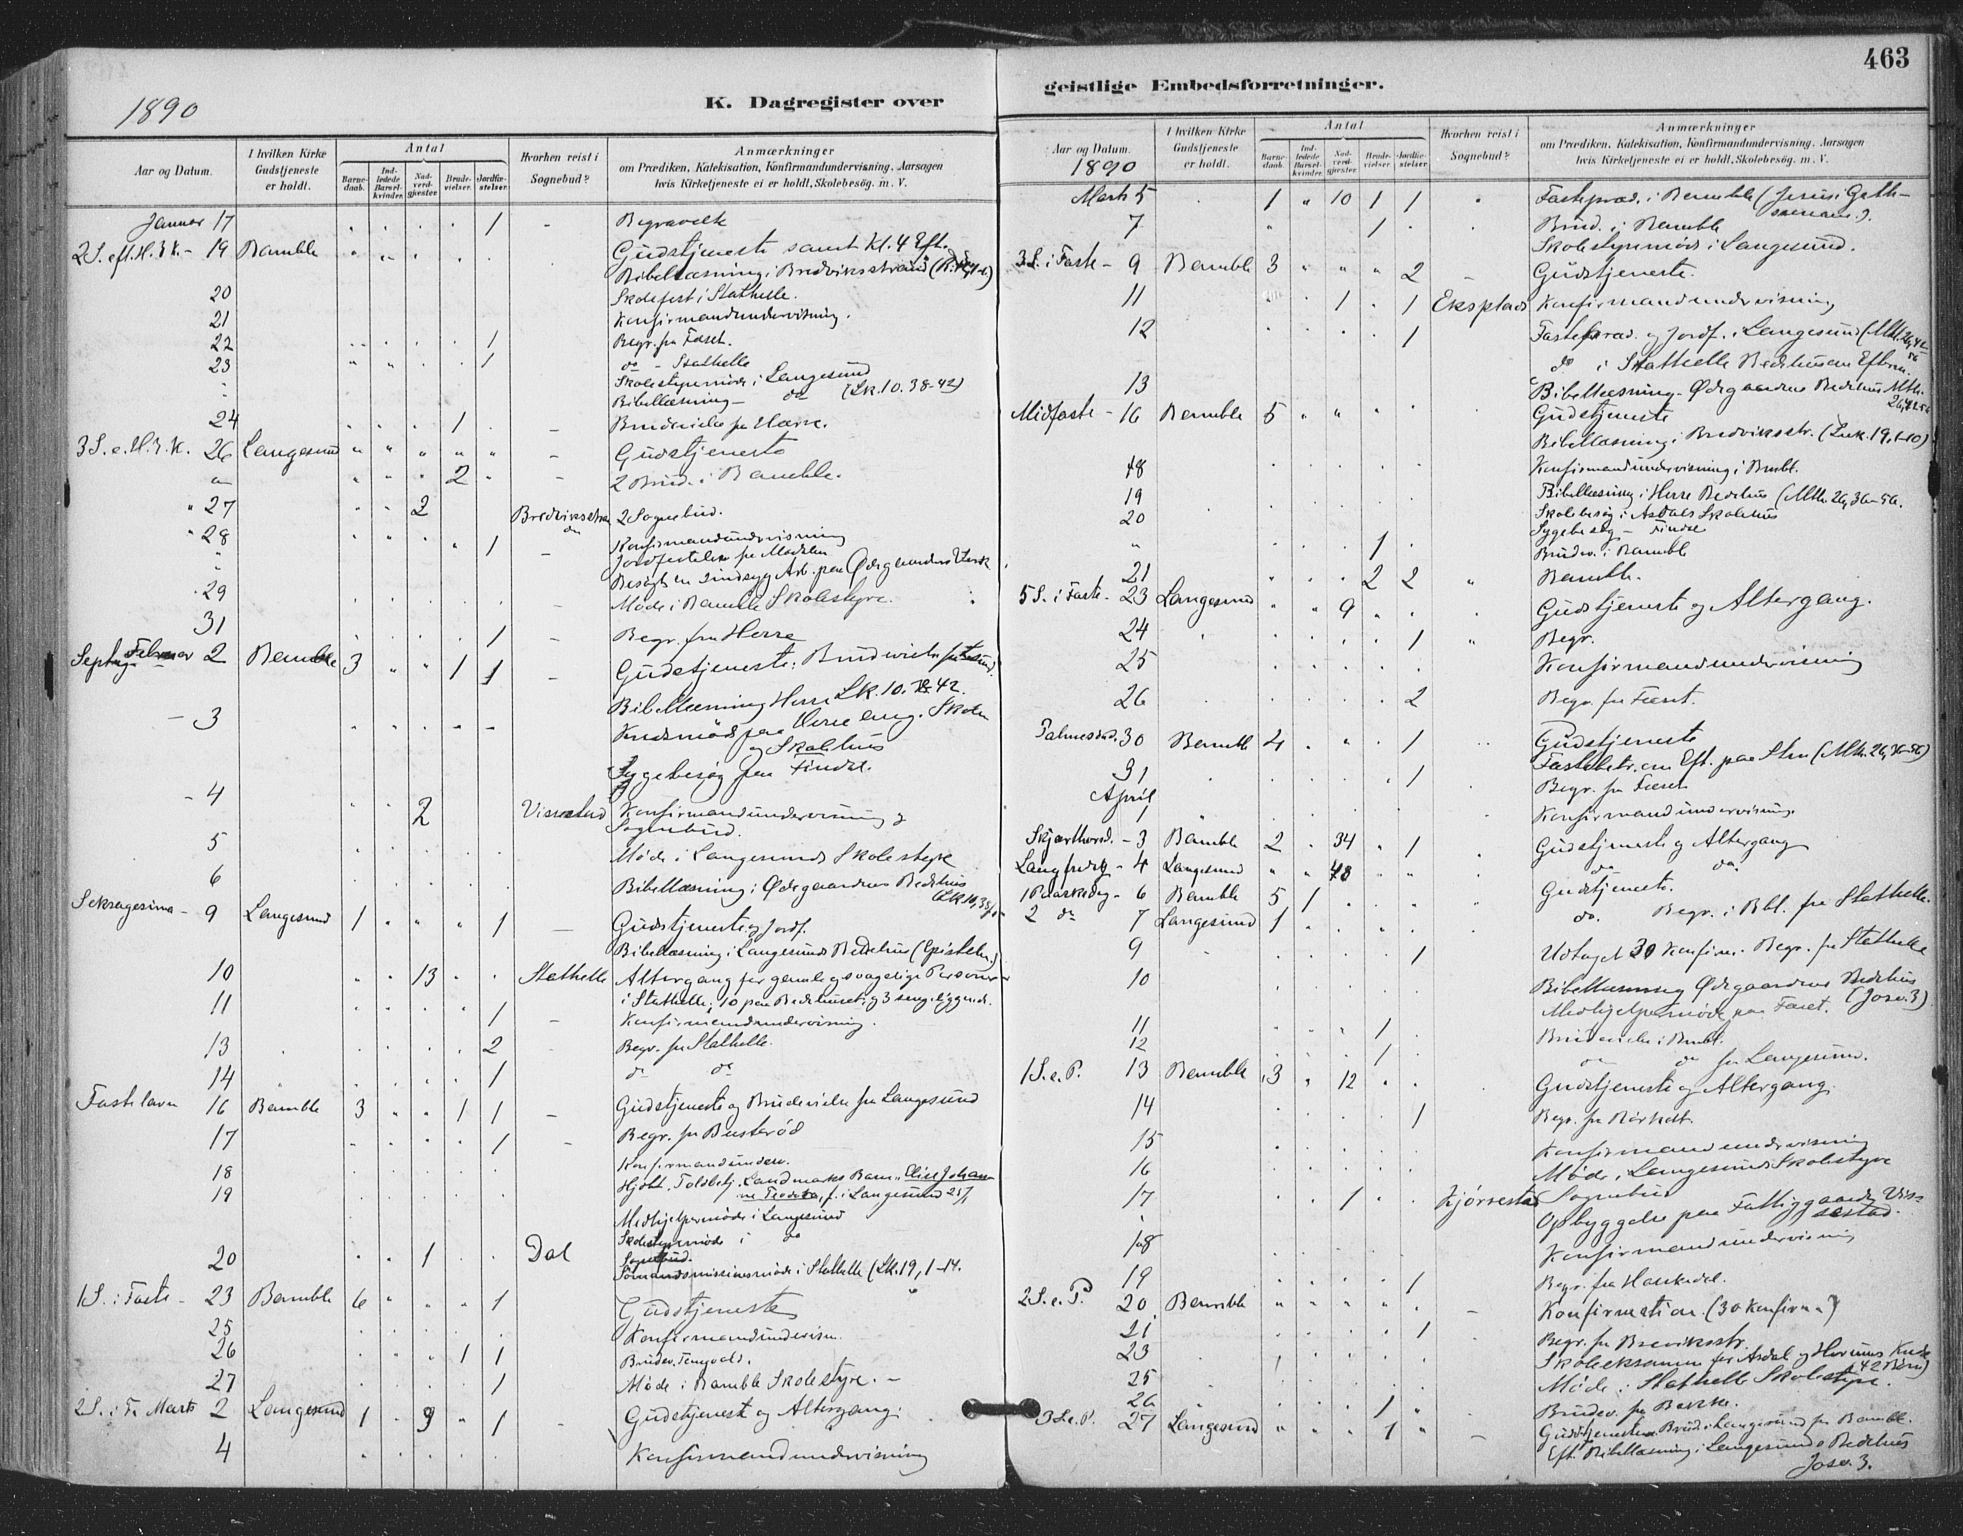 463
1890
K. Dagregister over
geistlige Embedsforretninger.
Aar og Datum. I hvilken Kirke Gudstjeneste er holdt. Antal Barnedaab. Indledede Barselkvinder. Nadverdgjester. Brudevielser. Jordfæstelser. Hvorhen reist i Sognebud? Anmærkninger om Prædiken, Katekisation, Konfirmandundervisning, Aarsagen hvis Kirketjeneste ei er holdt, Skolebesøg, m. V.
Januar 17 1 Begravelse
2 S. eft. H. 3 K. - 19 Bamble Gudstjeneste samt Kl. 4 Eft.
Bibellæsning i Bredviksstrand
20 Skolefest i Stathelle.
21 Konfirmandundervisning.
22 1 Begr. fra Faset.
23 1 do - Stathelle
Skolestyremøde i Langesund
Bibellæsning - do (Lk. 10. 38-42)
24 1 Brudevielse fra Herre.
3 S. e. H. 3. K. 26 Langesund Gudstjeneste
2 2 Brud. i Bamble.
27 2 Bredviksstran 2 Sognebud.
do
28 1 Konfirmandundervisning
Jordfæstelse fra
Besøgt en sindsyg Arb. paa Ødegaardens Værk
29 Møde i Bamble Skolestyre.
31 1 Begr. fra Herre
Septuag Februar 2 Bamble 3 1 1 Gudstjeneste; Brudvielse fra
Bibellæsning Herre Lk. 10. 38-42.
3 Kredsmøde paa
og Skolehus
Sygebesøg paa Findal.
4 2 Vissestad Konfirmandundervisning &
Sognebud.
5 Møde i Langesunds Skolestyre
6 Bibellæsning i Ødegaardens Bedehus
Seksagesima - 9 Langesund 1 1 Gudstjeneste og Jordf.
Bibellæsning i Langesunds Bedehus (Epistelen.)
10 13 Stathelle Altergang for gamle og svagelige Personer
i Stathelle; 10 paa Bedehuset og 3 sengeliggende.
11 1 Konfirmandundervisning.
13 2 Begr. fra Stathelle.
14 1 do do
Fastelavn 16 Bamble 3 1 1 Gudstjeneste og Brudevielse fra Langesund
17 1 Begr. fra Busterød
18 Konfirmandunderv.
19 Hjdbt. Toldbetj. Landmarks Barn, Elise Johan-
ne Teodora, f. i Langesund 25/
Medhjelpermøde i Langesund
Skolestyremøde i do
20 1 Dal Sognebud.
Sømandsmissionsmøde i Stathelle (Lk. 19, 1-14.
1 S. i Faste - 23 Bamble 6 1 Gudstjeneste
25 Konfirmandundervisn.
26 1 1 Brudev. Tangvald.
27 1 Møde i Bamble Skolestyre. -
2 S. i Fa Marts 2 Langesund 1 9 1 Gudstjenest og Altergang.
4 Konfirmandundervisning
Aar og Datum. I hvilken Kirke Gudstjeneste er holdt. Antal Barnedaab. Indledede Barselkvinder. Nadverdgjester. Brudevielser. Jordfæstelser. Hvorhen reist i Sognebud? Anmærkninger om Prædiken, Katekisation, Konfirmandundervisning, Aarsagen hvis Kirketjeneste ei er holdt, Skolebesøg, m. V.
1890
Marts 5 1 10 1 1 Fastepræd. i Bamble (Jesus i Geth-
semane).
7 1 Brud. i Bamble
Skolestyremøde i Langesund.
3 S. i Faste - 9 Bamble 3 2 Gudstjeneste.
11 1 1 Eksplads Konfirmandundervisning
12 1 Fastepræd. og Jordf. i Langesund (Mth. 26, 42-
56
do i Stathelle Bedehus om Efterm.
13 Bibellæsning Ødegaardens Bedehus Mth.
Midfaste - 16 Bamble 5 Gudstjeneste
Bibellæsning i Bredviksstr. (Luk. 19, 1-10)
18 Konfirmandundervisning i Bmbl.
19 Bibellæsning i Herre Bedehus (Mth. 26, 36-56.
20 Skolebesøg i Asdals Skolehus
Sygebesøg - Findal
1 Brudev. i Bamble
21 2 2 Bamble.
5 S. i Faste - 23 Langesund 9 Gudstjeneste og Altergang.
24 1 Begr.
25 Konfirmandundervisning
26 2 Begr. fra Faset.
Palmesønd. 30 Bamble 4 1 Gudstjeneste
Fastebetr. om Eft. paa (Mth. 26, 36-56)
31 1 Begr. fra Faset
April
1 Konfirmandundervisning.
Skjærthorsd. - 3 Bamble 2 34 1 Gudstjeneste og Altergang
Langfredg - 4 Langesund 48 do do
1 Paaskedag - 6 Bamble 5 1 Gudstjeneste.
2 do 7 Langesund 1 do. Begr. i Bbl. fra Stathelle.
9 1 Udtaget 30 Konfirm. Begr. fra Stathelle
10 Bibellæsning Ødegaardens Bedehus
Medhjelpermøde paa Faset. (Josv. 3)
11 1 Brudevielse i Bmbl.
12 1 do do fra Langesund.
1 S. e. P. 13 Bamble 3 12 Gudstjeneste og Altergang.
14 1 Begr. fra
15 Konfirmandundervisning
16 Møde i Langesunds Skolestyre
17 1 Kjørrestad Sognebud
Opbyggelse paa Fattiggaarden Vis-
sestad.
18 Konfirmandundervisning
19 1 Begr. fra Haskedal.
2 S. e. P. 20 Bamble Konfirmation. (30 Konfirm.)
21 1 Begr. fra Breviksstr.
23 Skoleeksamen for Asdal og
(42 Børn)
25 Møde i Stathelle Skolestyre.
26 1 Brudev. fra
3 S. e. P. 27 Langesund 1 Gudstjeneste Brud. i Langesund fra Bamble.
Eft. Bibellæsning i Langesunds Bedehus
Josv. 3.